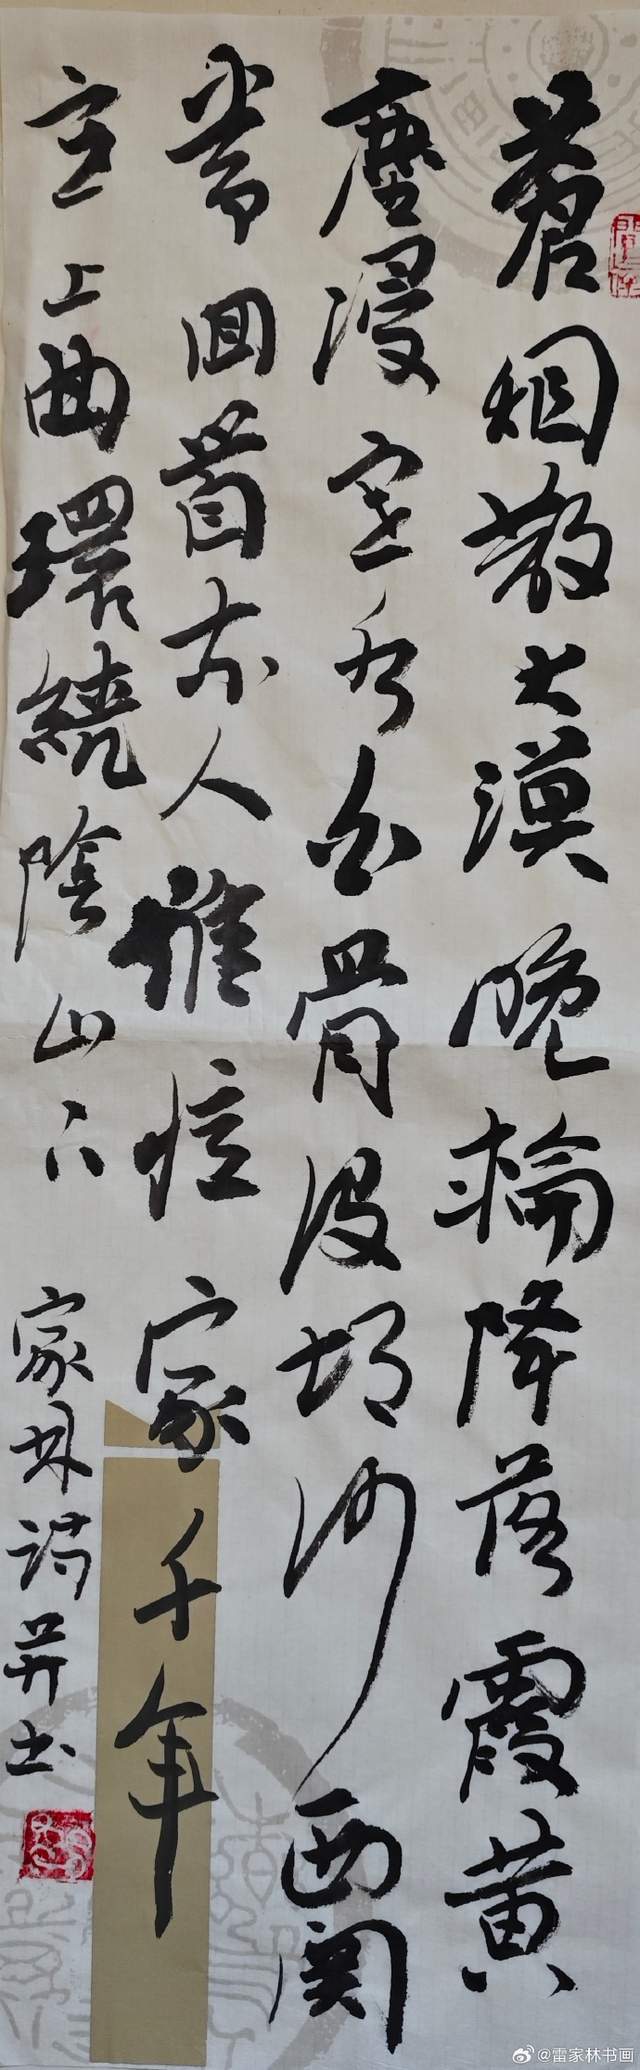 蒼烟散大漠晚輪降落霞黄
塵浸塞外白骨没胡沙西関
常回首前人誰忆家千年
塞上曲環繞陰山下
家林詩并书
@雷家林书画